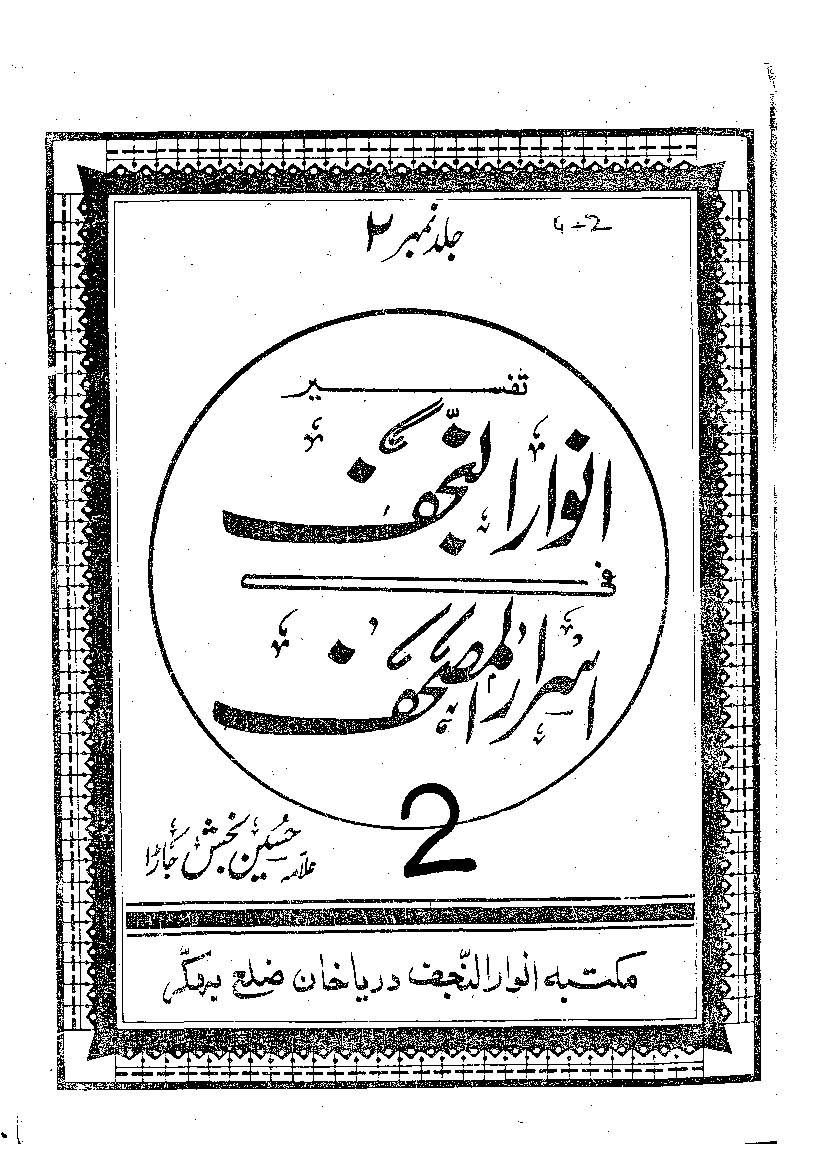 جلد نمبر ۲
تفسیر
انوار النجف
فی
اسرار المصحف
2
علامہ حسین بخش جاڑا
مکتبہ انوار النّجف دریا خان ضلع بھکّر